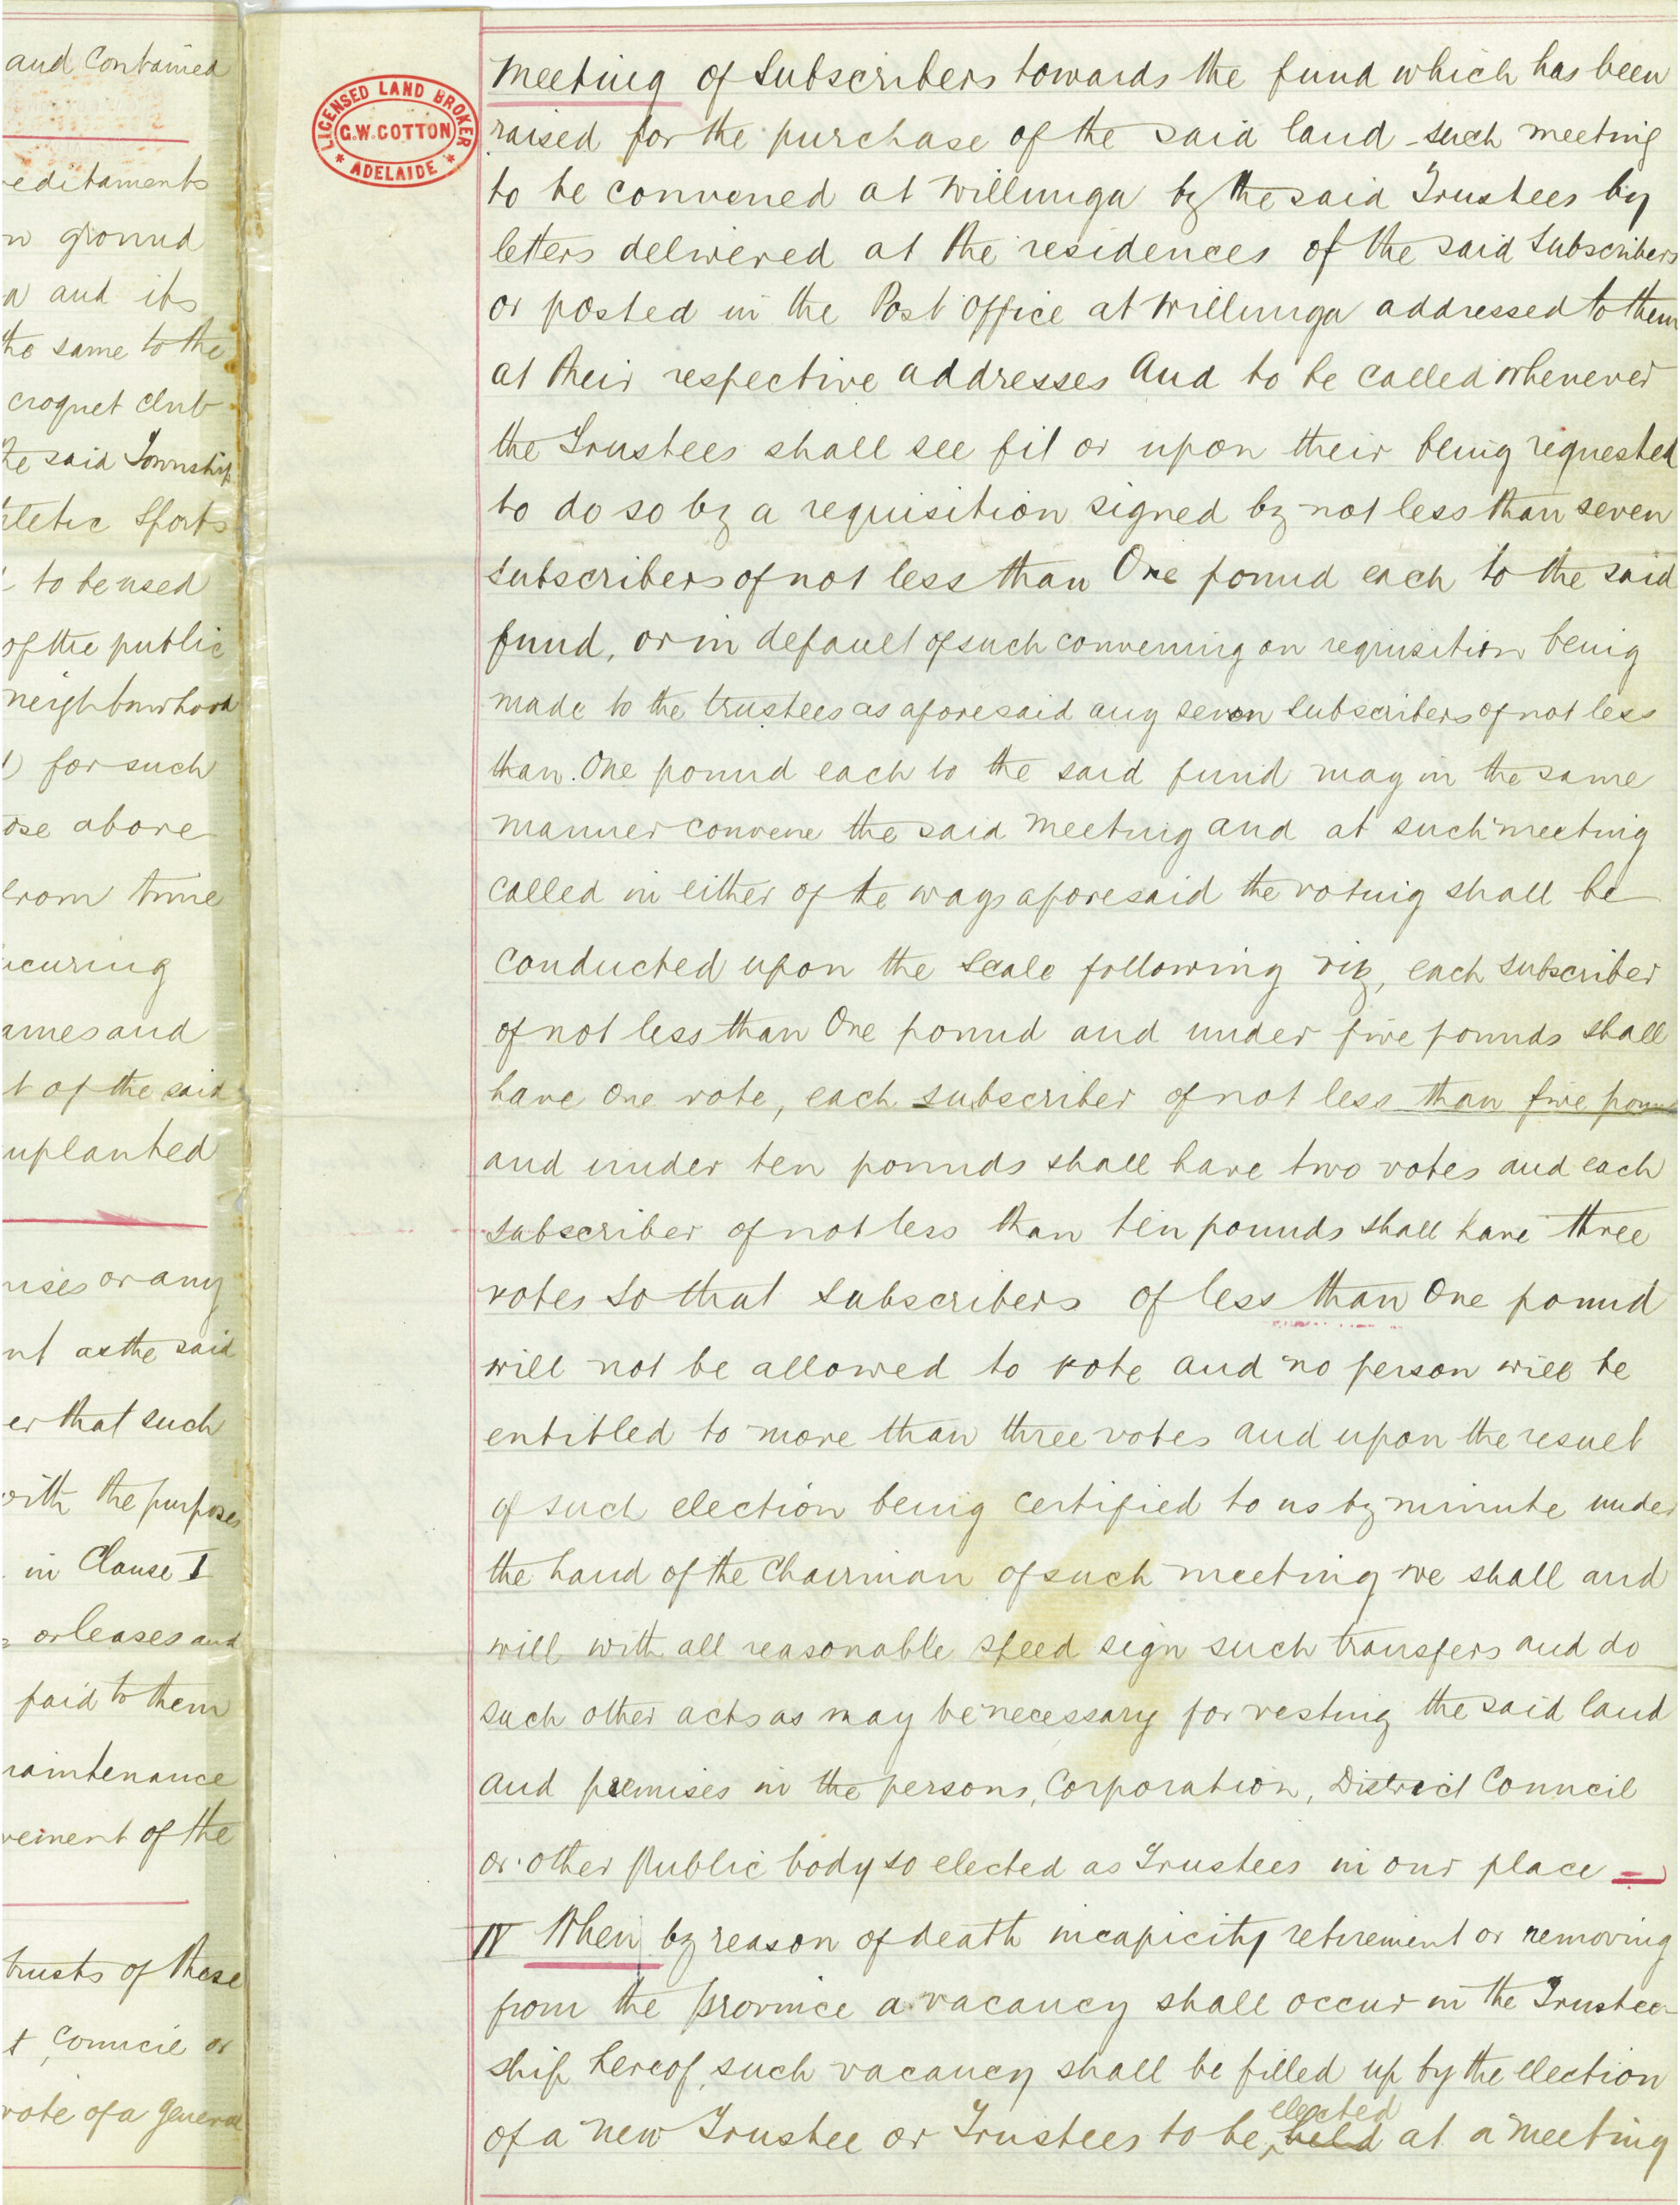 and Contained
editaments
n ground
a and its
the same to the
croquet club
he said Township
hletic Sports
to be used
of the public
neighbourhood
) for such
ose above
from time
ecuring
ames and
t of the said
uplanted
mises or any
nt as the said
er that such
with the purposes
in Clause I
or leases and
paid to them
maintenance
vement of the
trusts of these
t Council or
vote of a general
LICENSED LAND BROKER
G.W. COTTON
* ADELAIDE *
Meeting of Subscribers towards the fund which has been
raised for the purchase of the said land such meeting
to be convened at Willunga by the said Trustees by
letters delivered at the residences of the said Subscribers
or posted in the Post Office at Willunga addressed to them
at their respective addresses And to be called whenever
the Trustees shall see fit or upon their being requested
to do so by a requisition signed by not less than seven
subscribers of not less than One pound each to the said
fund, or in default of such convening on requisition being
made to the trustees as aforesaid any seven Subscribers of not less
than One pound each to the said fund may in the same
manner convene the said Meeting and at such meeting
called in either of the ways aforesaid the voting shall be
conducted upon the Scale following viz, each subscriber
of not less than One pound and under five pounds shall
have One vote, each subscriber of not less than five pound
and under ten pounds shall have two votes and each
subscriber of not less than ten pounds shall have three
votes so that Subscribers of less than One pound
will not be allowed to vote and no person will be
entitled to more than three votes and upon the result
of such election being certified to us by minute under
the hand of the Chairman of such meeting we shall and
will with all reasonable speed sign such transfers and do
such other acts as may be necessary for vesting the said land
and premises in the persons, Corporation, District Council
or other public body so elected as Trustees in our place
IV When by reason of death incapicity retirement or removing
from the province a vacancy shall occur in the Trustee
ship hereof, such vacancy shall be filled up by the election
elected
of a new Trustee or Trustees to be held at a Meeting